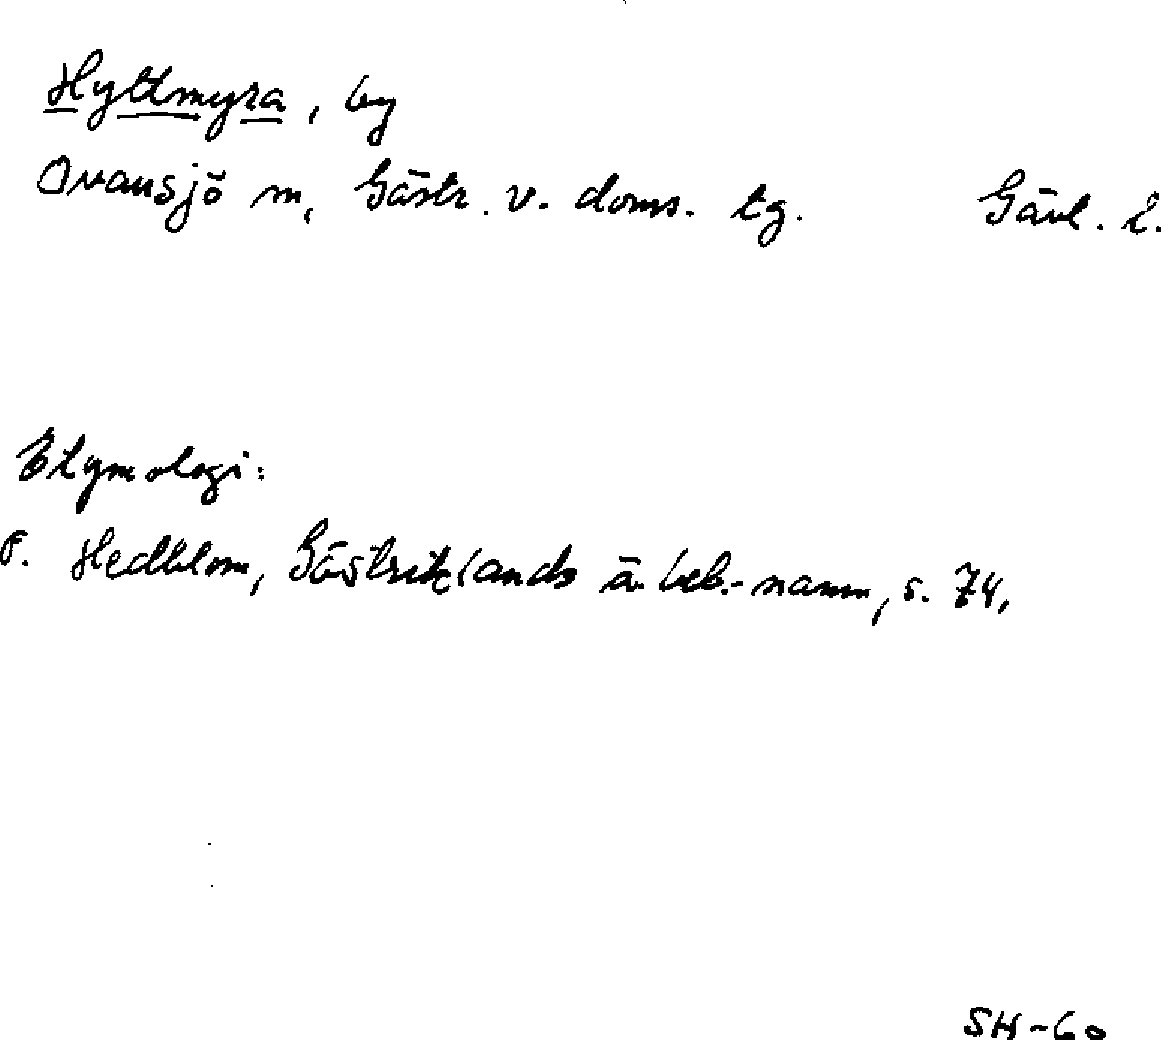 Hyttmyra, by
Ovansjö sn, Gästr. v. doms. tg. Gävl. l.
Etymologi:
F. Hedblom, Gästriklands ä. beb.-namn, s. 74.
SH-60